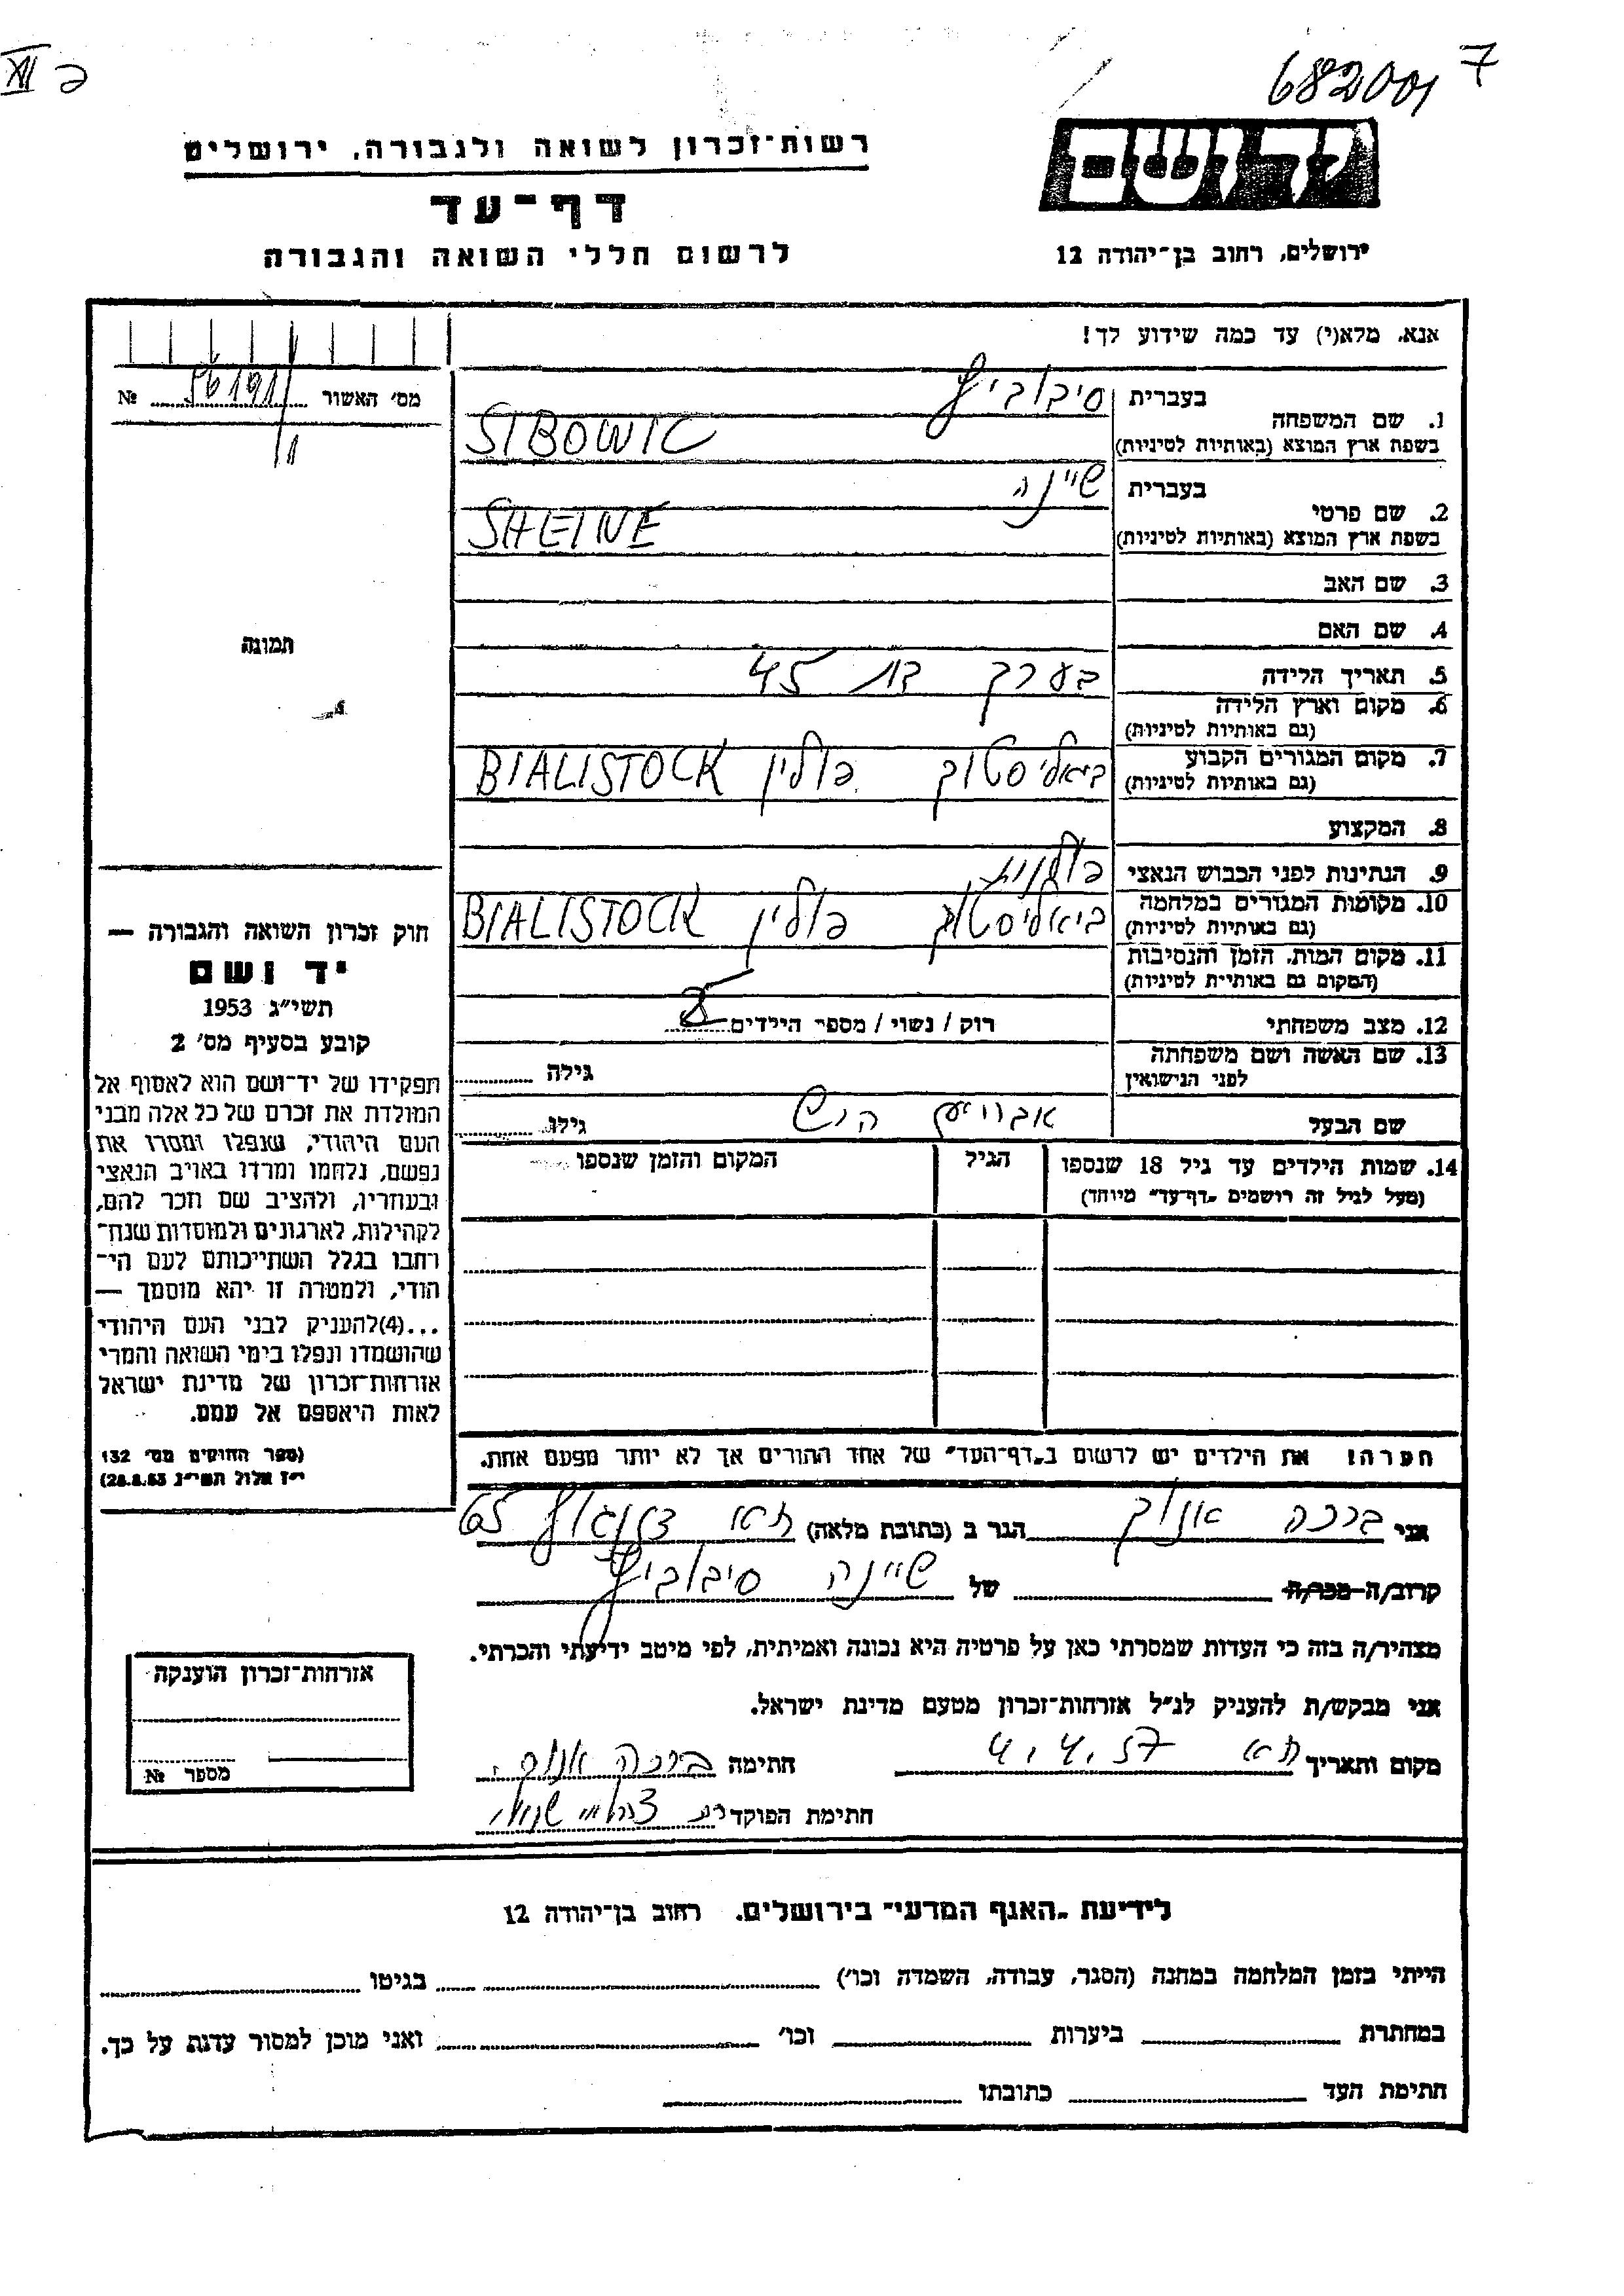 682001 7
XII
יד ושם
רשות־זכרון לשואה ולגבורה, ירושלים
דף־עד
לרשום חללי השואה והגבורה
ירושלים, רחוב בן־יהודה 12
אנא, מלא(י) עד כמה שידוע לך!
מס׳ האשור № 
1. שם המשפחה
בעברית סיבוביץ
בשפת ארץ המוצא (באותיות לטיניות) SIBOWIC
2. שם פרטי
בעברית שיינה
בשפת ארץ המוצא (באותיות לטיניות) SHEINE
3. שם האב
4. שם האם
תמונה
5. תאריך הלידה בערך בת 45
6. מקום וארץ הלידה
(גם באותיות לטיניות)
7. מקום המגורים הקבוע
(גם באותיות לטיניות) ביאליסטוק פולין BIALISTOCK
8. המקצוע
9. הנתינות לפני הכבוש הנאצי פולנית
10. מקומות המגורים במלחמה
(גם באותיות לטיניות) ביאליסטוק פולין BIALISTOCK
11. מקום המות, הזמן והנסיבות
(המקום גם באותיות לטיניות)
12. מצב משפחתי רוק / נשוי / מספר הילדים
13. שם האשה ושם משפחתה
לפני הנישואין גילה
שם הבעל הירש גילו
14. שמות הילדים עד גיל 18 שנספו הגיל המקום והזמן שנספו
(מעל לגיל זה רושמים „דף־עד״ מיוחד)
חוק זכרון השואה והגבורה —
יד ושם
תשי״ג 1953
קובע בסעיף מס׳ 2
תפקידו של יד־ושם הוא לאסוף אל
המולדת את זכרם של כל אלה מבני
העם היהודי, שנפלו ומסרו את
נפשם, נלחמו ומרדו באויב הנאצי
ובעוזריו, ולהציב שם וזכר להם,
לקהילות, לארגונים ולמוסדות שנח־
רבו בגלל השתייכותם לעם הי־
הודי, ולמטרה זו יהא מוסמך —
...(4)להעניק לבני העם היהודי
שהושמדו ונפלו בימי השואה והמרי
אזרחות־זכרון של מדינת ישראל
לאות היאספם אל עמם.
(ספר החוקים מס׳ 132
י״ז אלול תשי״ג 28.8.53)
הערה! את הילדים יש לרשום ב„דף־העד״ של אחד ההורים אך לא יותר מפעם אחת.
אני ברכה הגר ב (כתובת מלאה) ת״א דיזנגוף 65
קרוב/ה מכר/ה של שיינה סיבוביץ
מצהיר/ה בזה כי העדות שמסרתי כאן על פרטיה היא נכונה ואמיתית, לפי מיטב ידיעתי והכרתי.
אני מבקש/ת להעניק לנ״ל אזרחות־זכרון מטעם מדינת ישראל.
מקום ותאריך ת״א 4.4.57 חתימה ברכה
חתימת הפוקד
אזרחות־זכרון הוענקה
מספר №
לידיעת „האגף המדעי״ בירושלים, רחוב בן־יהודה 12
הייתי בזמן המלחמה במחנה (הסגר, עבודה, השמדה וכו׳) בגיטו
במחתרת ביערות וכו׳ ואני מוכן למסור עדות על כך.
חתימת העד כתובתו